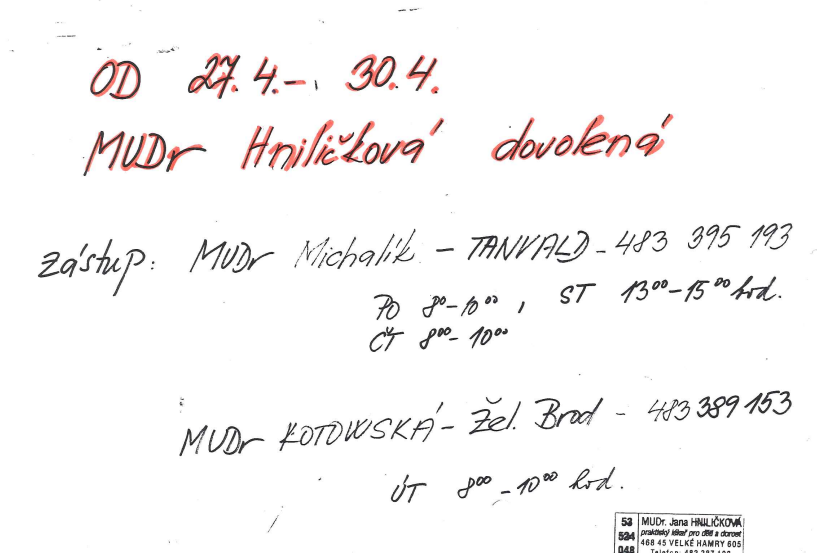 OD 27. 4. - 30. 4.
MUDr Hniličková dovolená
zástup: MUDr Michalík - TANVALD - 483 395 193
PO 8⁰-10⁰⁰, ST 13⁰⁰-15⁰⁰ hod.
ČT 8⁰⁰-10⁰⁰
MUDr KOTOWSKÁ - Žel. Brod - 483 389 153
ÚT 8⁰⁰-10⁰⁰ hod.
53 MUDr. Jana HNILIČKOVÁ
524 praktický lékař pro děti a dorost
048 468 45 VELKÉ HAMRY 605